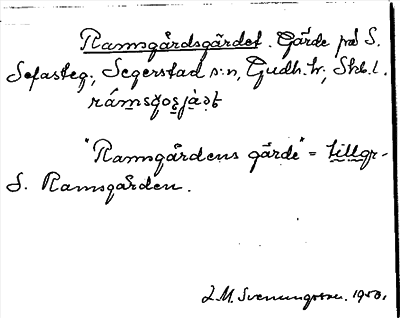 Ramsgårdsgärdet. Gärde på S.
Sefasteg:, Segerstad s:n, Gudh. hr; Skb. l.
"Ramsgårdens gärde" = tillgr.
S. Ramsgården.
1950.